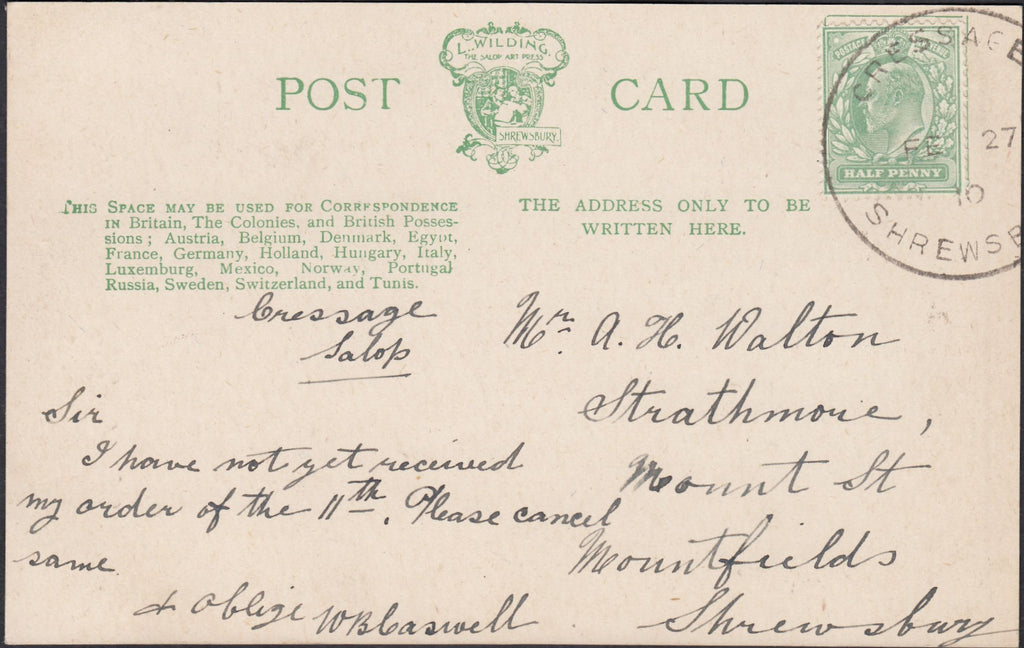 L. WILDING.
THE SALOP ART PRESS
SHREWSBURY.
POST CARD
CRESSAGE
FE 27
10
SHREWSB
HALF PENNY
THIS SPACE MAY BE USED FOR CORRESPONDENCE
IN Britain, The Colonies, and British Posses-
sions; Austria, Belgium, Denmark, Egypt,
France, Germany, Holland, Hungary, Italy,
Luxemburg, Mexico, Norway, Portugal
Russia, Sweden, Switzerland, and Tunis.
THE ADDRESS ONLY TO BE
WRITTEN HERE.
Cressage
Salop
Sir
I have not yet received
my order of the 11th. Please cancel
same
& oblige WBCaswell
Mr. A. H. Walton
Strathmore,
Mount St
Mountfields
Shrewsbury